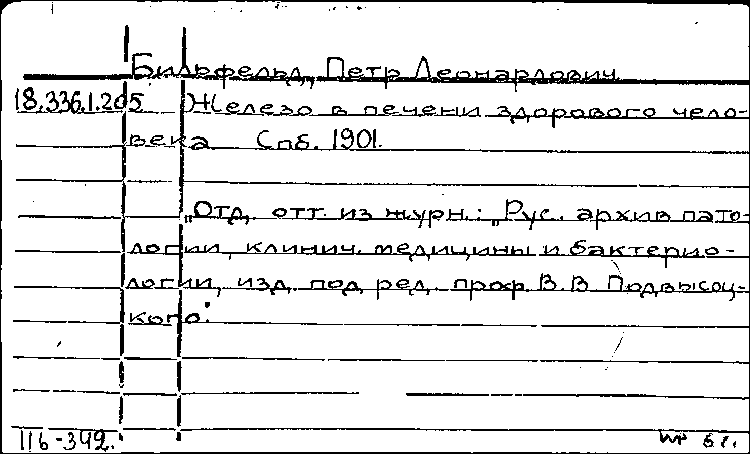 Бильфельд, Петр Леонардович
18.336.1.205 Железо в печени здорового чело-
века Спб. 1901.
„Отд. отт. из журн.: „Рус. архив пато-
логии, клинич. медицины и бактерио-
логии, изд. под ред. проф. В. В Подвысоц-
кого".
116-342.